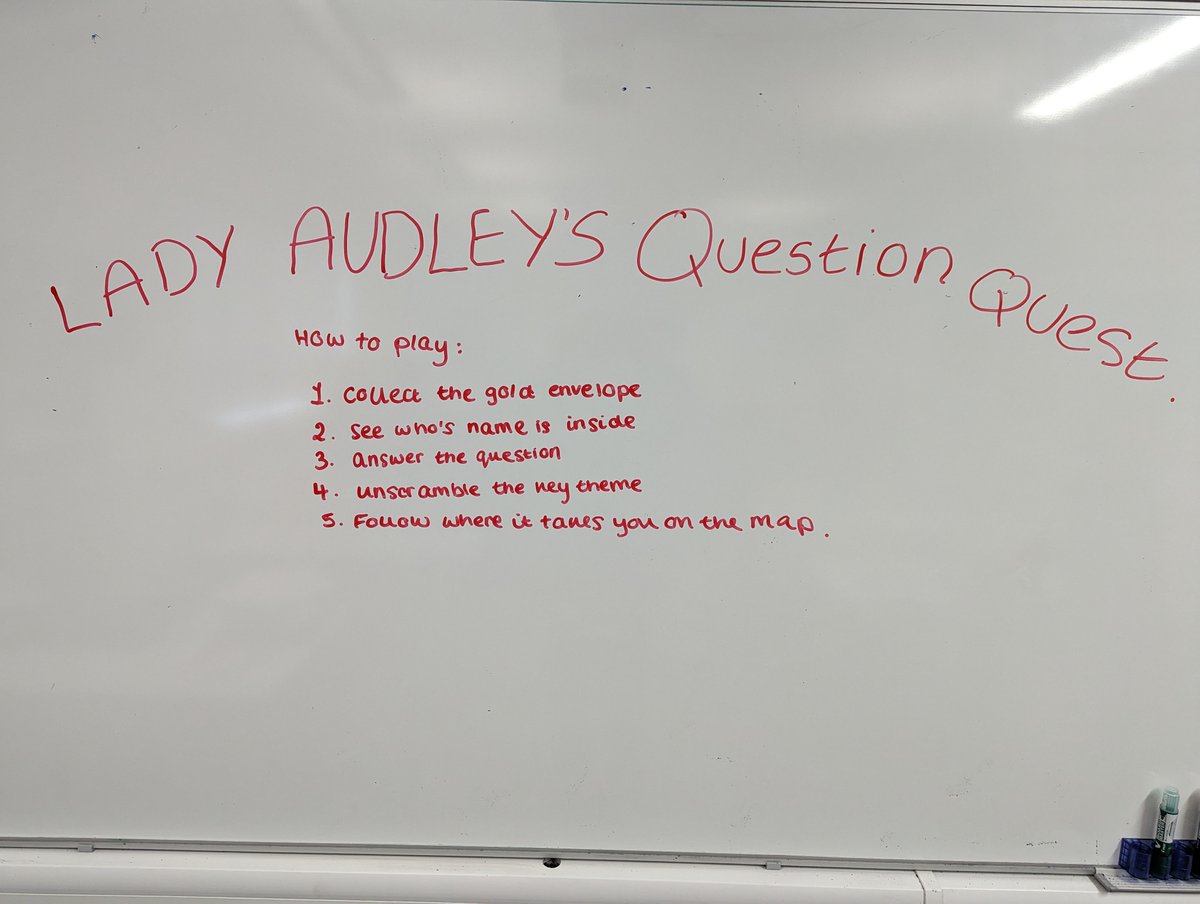 LADY AUDLEY'S Question Quest.
How to play:
1. collect the gold envelope
2. see who's name is inside
3. answer the question
4. unscramble the key theme
5. Follow where it takes you on the map.